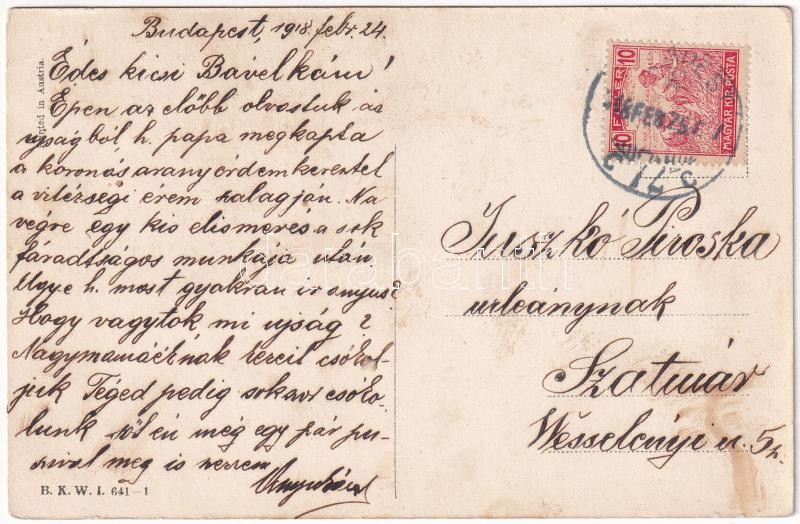 Budapest, 1918. febr. 24.
Édes kicsi Bavelkám!
Épen az előbb olvastuk az
ujságból h. papa megkapta
a koronás arany érdemkeresztet
a vitézségi érem szalagján. Na
végre egy kis elismerés a sok
fáradtságos munkája után
Ugye h. most gyakran ir anyus?
Hogy vagytok mi ujság?
Nagymamáéknak kezeit csókol-
juk Téged pedig sokszor csóko-
lunk sőt én még egy pár pu-
szival meg is
Printed in Austria.
B. K. W. I. 641-1
10 FILLÉR 10
MAGYAR KIR. POSTA
Juszkó Piroska
urleánynak
Szatmár
Wesselényi u. 5 sz.
darabanth